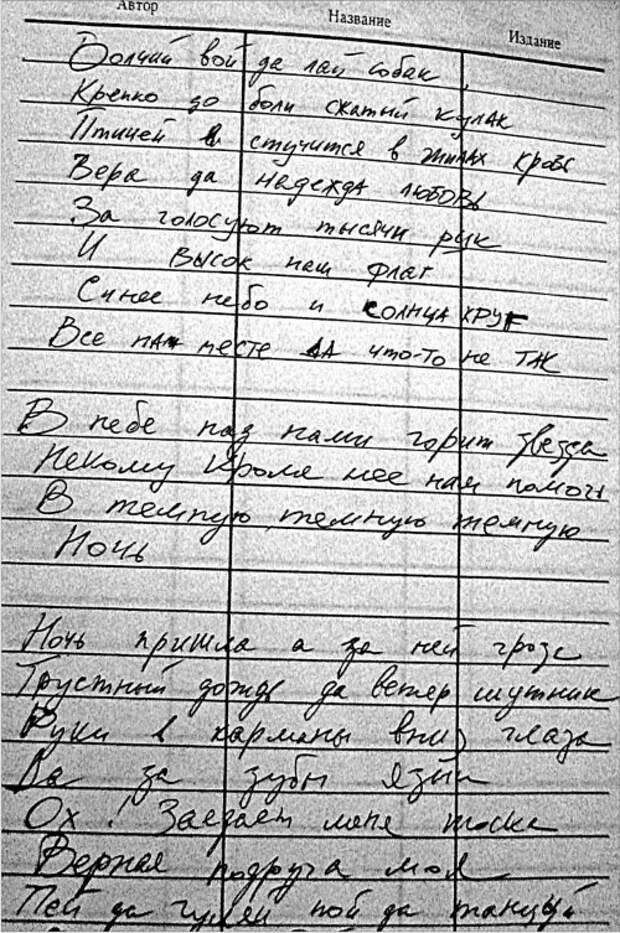 Автор Название Издание
Волчий вой да лай собак
Крепко до боли сжатый кулак
Птицей стучится в жилах кровь
Вера да надежда любовь
За голосуют тысячи рук
И высок наш флаг
Синее небо и солнца круг
Все на месте да что-то не так
В небе над нами горит звезда
Некому кроме нее нам помочь
В темную темную темную
Ночь
Ночь пришла а за ней гроза
Грустный дождь да ветер шутник
Руки в карманы вниз глаза
Да за зубы язык
Ох! Заедает меня тоска
Верная подруга моя
Пей да гуляй пой да танцуй